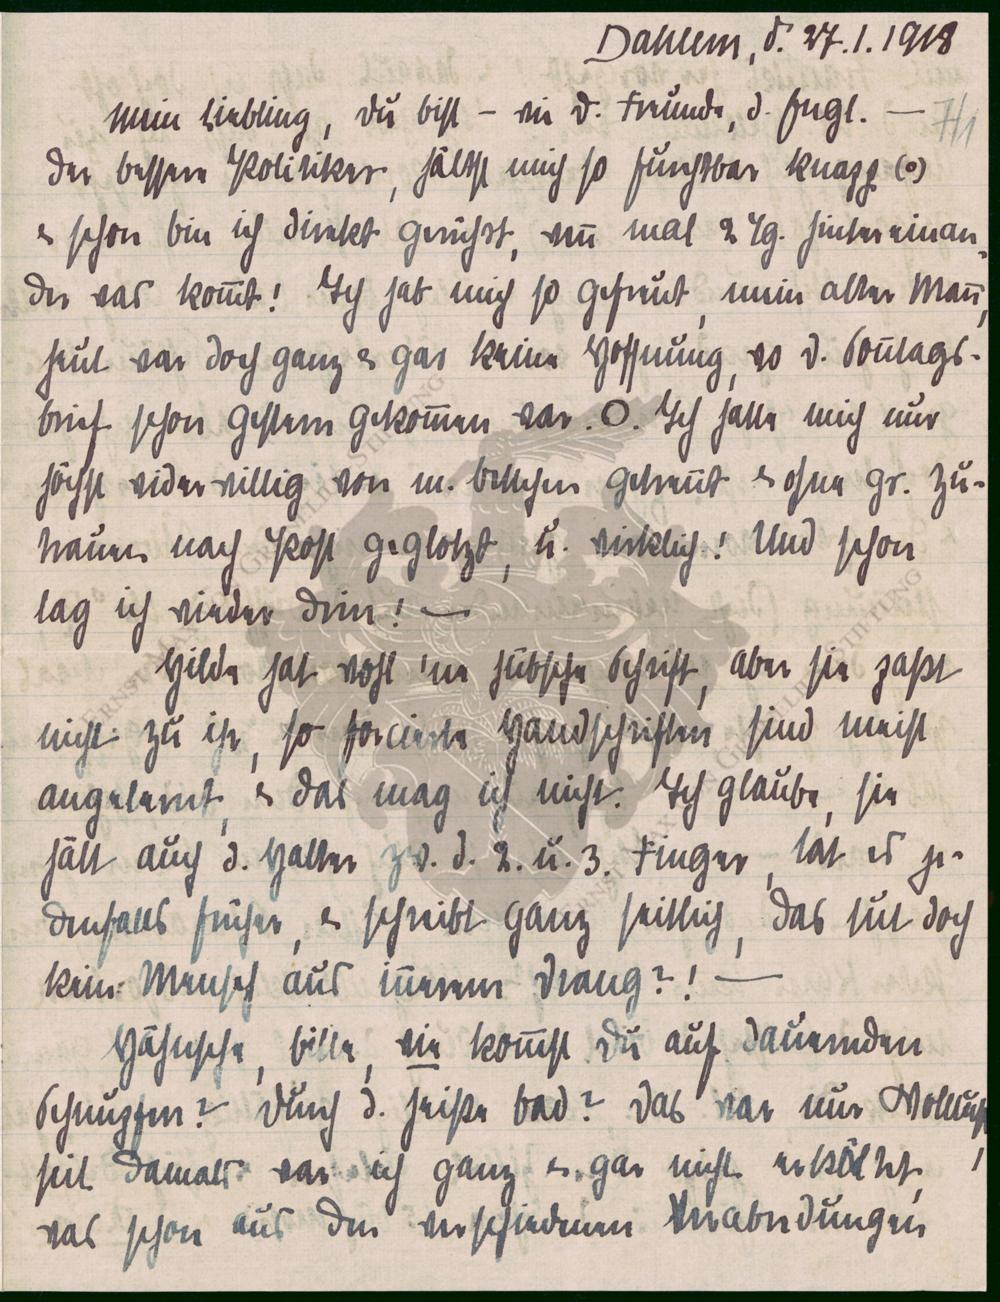 Dahlem, d. 27.1.1918
Mein Liebling, du bist – wie d. Freunde, d. Engl. — 7/1
der bessere Politiker, hältst mich so furchtbar knapp (°)
& schon bin ich direkt gerührt, wen̄ mal 2 Tg. hintereinan-
der was kom̄t! Ich hab mich so gefreut, mein alter Man̄,
heut war doch ganz & gar keine Hoffnung, wo d. Son̄tags-
brief schon gestern gekom̄en war. O. Ich hatte mich nur
höchst widerwillig von m. Bettchen getrennt & ohne gr. Zu-
trauen nach Post geglotzt, u. wirklich! Und schon
lag ich wieder drin! —
Hilde hat wohl 'ne hübsche Schrift, aber sie paßt
nicht zu ihr, so forcierte Handschriften sind meist
angelernt, & das mag ich nicht. Ich glaube, sie
hält auch d. Halter zw. d. 2. u. 3. Finger, tat es je-
denfalls früher, & schreibt ganz seitlich, das tut doch
kein Mensch aus in̄erem Drang?! —
Hähnsche, bitte, wie kom̄st Du auf dauernden
Schnupfen? Durch d. heiße Bad? Das war nur Wollust,
seit damals war ich ganz & gar nicht erkältet,
was schon aus den verschiedenen Verabredungen
ERNST MAX GELLERT STIFTUNG